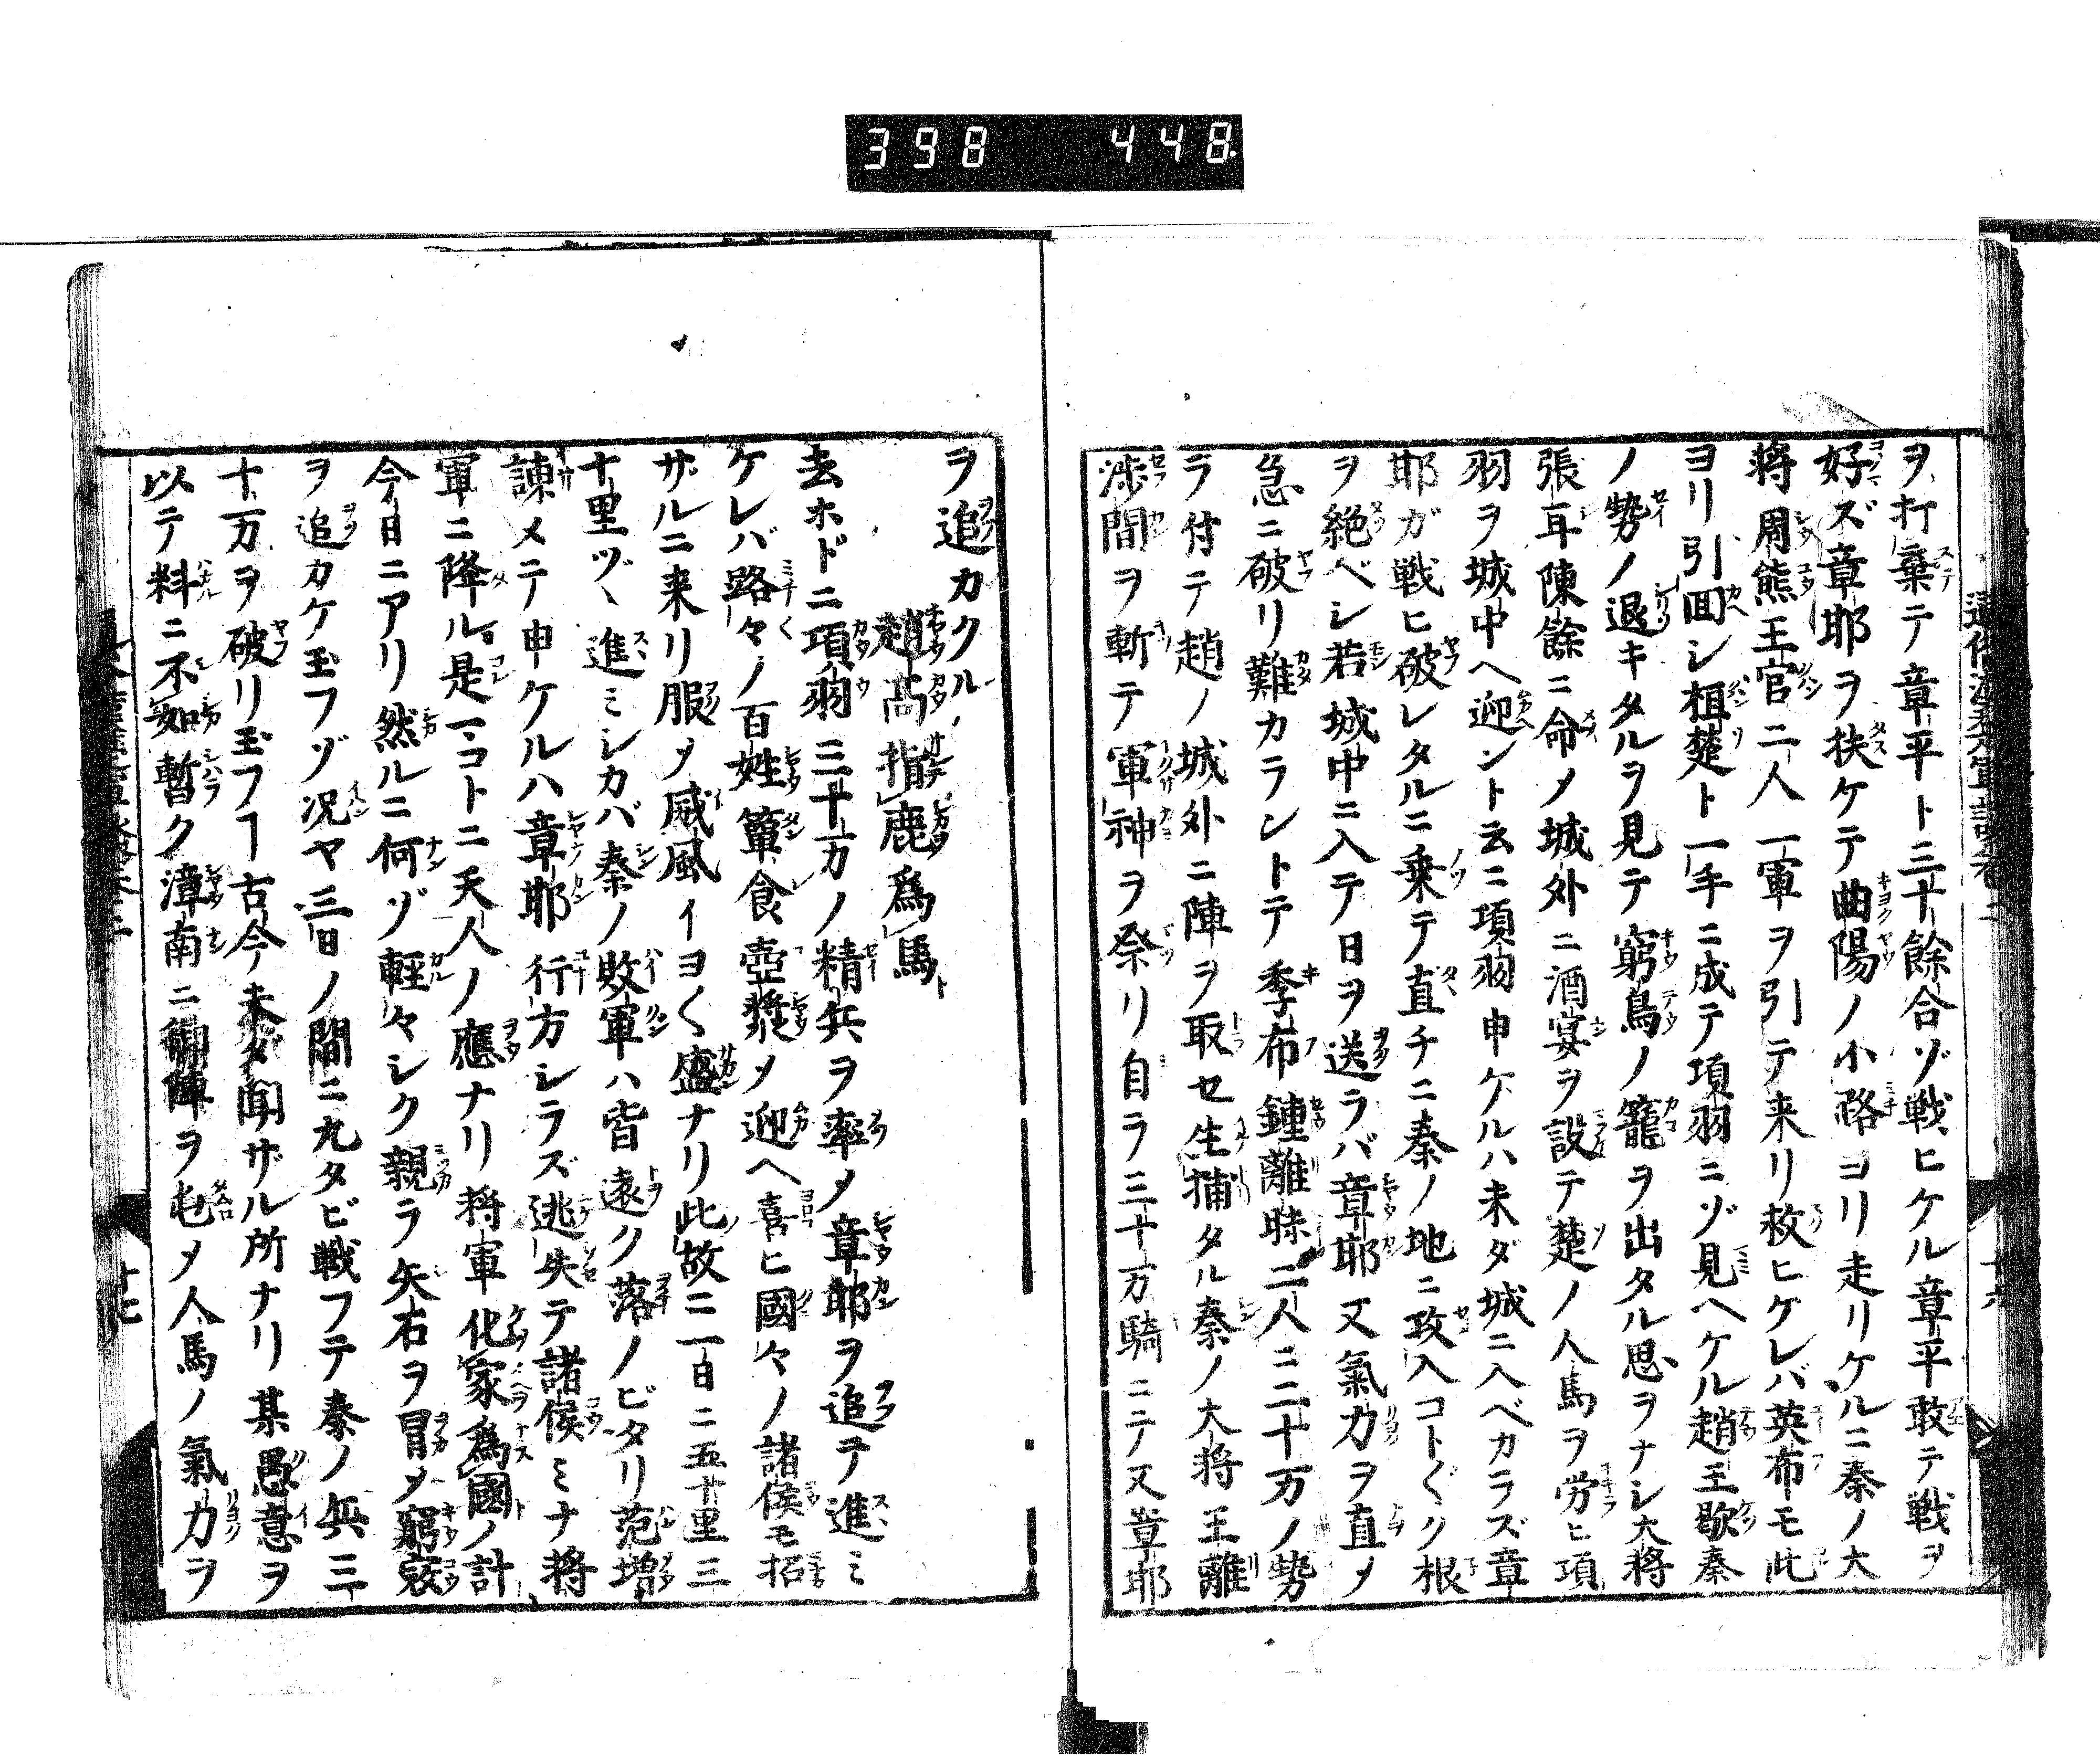 398 448
ヲ打棄テ章平ト三十餘合ゾ戦ヒケル章平敢テ戦ヲ
好ズ章邯ヲ扶ケテ曲陽ノ小路ヨリ走リケルニ秦ノ大
将周熊王官二人一軍ヲ引テ来リ救ヒケレバ英布モ此
ヨリ引回シ桓楚ト一手ニ成テ項羽ニゾ見ヘケル趙王歇秦
ノ勢ノ退キタルヲ見テ窮鳥ノ籠ヲ出タル思ヲナシ大将
張耳陳餘ニ命メ城外ニ酒宴ヲ設テ楚ノ人馬ヲ労ヒ項
羽ヲ城中ヘ迎ントス云ニ項羽申ケルハ未ダ城ニ入ベカラズ章
邯ガ戦ヒ破レタルニ乗テ直チニ秦ノ地ニ攻入コト〲ク根
ヲ絶ベシ若城中ニ入テ日ヲ送ラバ章邯又氣力ヲ直メ
急ニ破リ難カラントテ季布鍾離昧二人ニ二十万ノ勢
ラ付テ趙ノ城外ニ陣ヲ取セ生捕タル秦ノ大将王離
渉間ヲ斬テ軍神ヲ祭リ自ラ三十万騎ニテ又章邯
ヲ追カクル
趙高指鹿為馬
去ホドニ項羽三十万ノ精兵ヲ率メ章邯ヲ追テ進ミ
ケレバ路々ノ百姓簞食壺漿メ迎ヘ喜ヒ國々ノ諸侯モ招
ザルニ来リ服メ威風イヨ〱盛ナリ此故ニ一日ニ五十里三
十里ヅヽ進ミシカバ秦ノ敗軍ハ皆遠ク落ノビタリ范増
諫メテ申ケルハ章邯行方シラズ逃失テ諸侯ミナ将
軍ニ降ル是コトニ天人ノ應ナリ将軍化家為國ノ計
今日ニアリ然ルニ何ゾ輕々シク親ラ矢石ヲ冒メ窮寇
ヲ追カケ玉フゾ況ヤ三日ノ間ニ九タビ戦フテ秦ノ兵三
十万ヲ破リ玉フヿ古今未ダ聞ザル所ナリ某愚意ヲ
以テ料ニ不如暫ク漳南ニ陣ヲ屯メ人馬ノ氣力ヲ